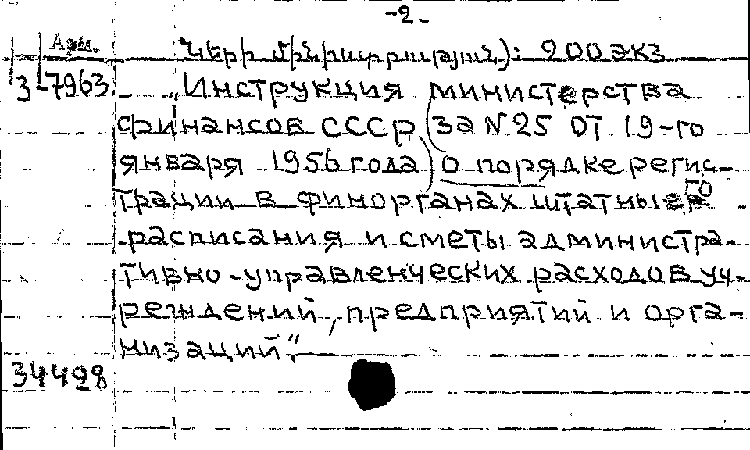 -2-
Арм.
ների մինիստրության): 200 экз
3-7963
„Инструкция министерства
финансов СССР (за №25 от 19-го
января 1956 года) о порядке регис-
трации в финорганах штатного
расписания и сметы администра-
тивно-управленческих расходов уч-
реждений, предприятий и орга-
низаций".
34498